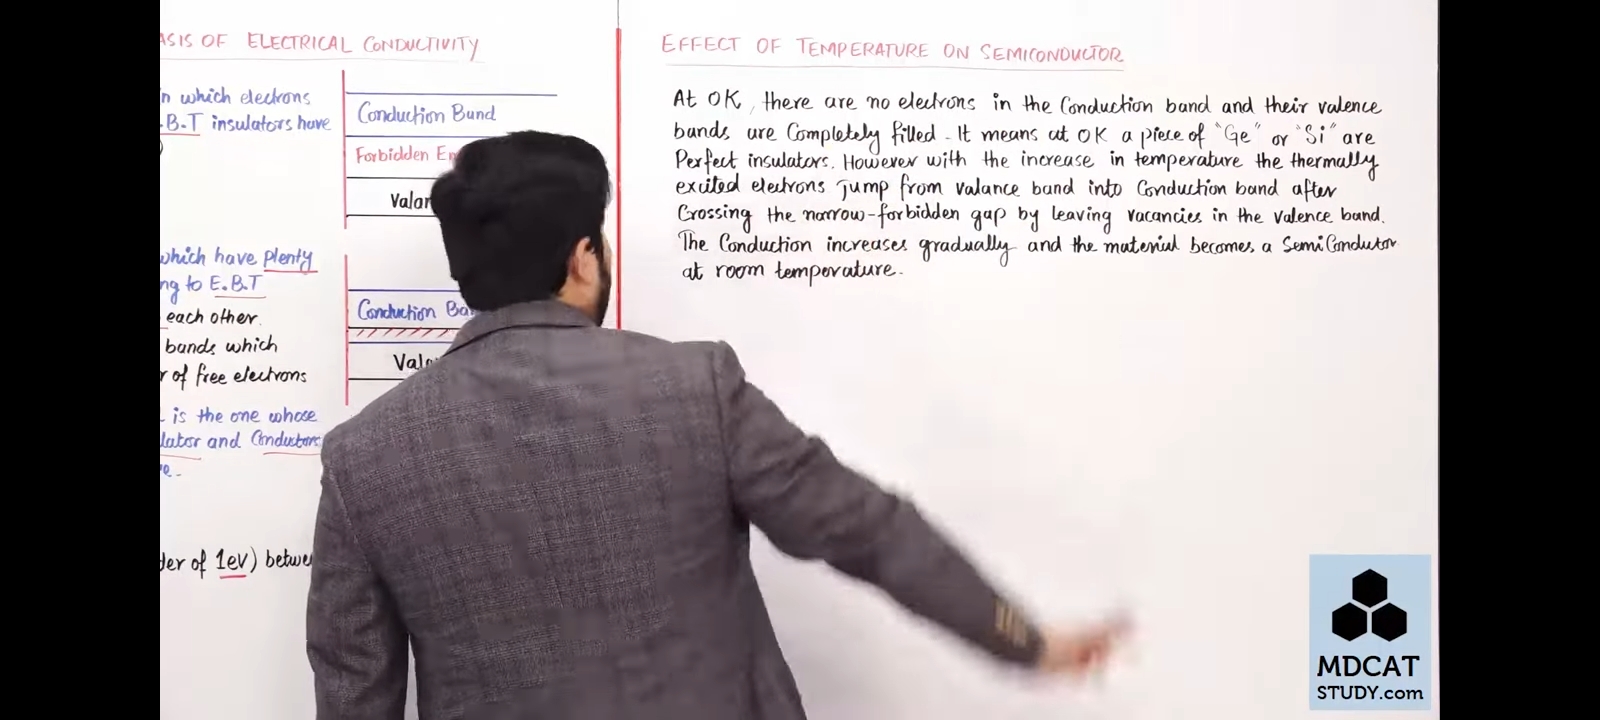 ASIS OF ELECTRICAL CONDUCTIVITY
n which electrons
.B.T insulators have
Conduction Band
Forbidden En
Valan
which have plenty
ng to E.B.T
each other.
bands which
r of free electrons
Conduction Ba
Vala
is the one whose
lator and Conductors
e.
der of 1eV) betwe
EFFECT OF TEMPERATURE ON SEMICONDUCTOR
At 0K, there are no electrons in the Conduction band and their valence
bands are Completely filled. It means at 0K a piece of "Ge" or "Si" are
Perfect insulators. However with the increase in temperature the thermally
excited electrons Jump from valance band into Conduction band after
Crossing the narrow-forbidden gap by leaving vacancies in the valence band.
The Conduction increases gradually and the material becomes a SemiCondutor
at room temperature.
MDCAT
STUDY.com